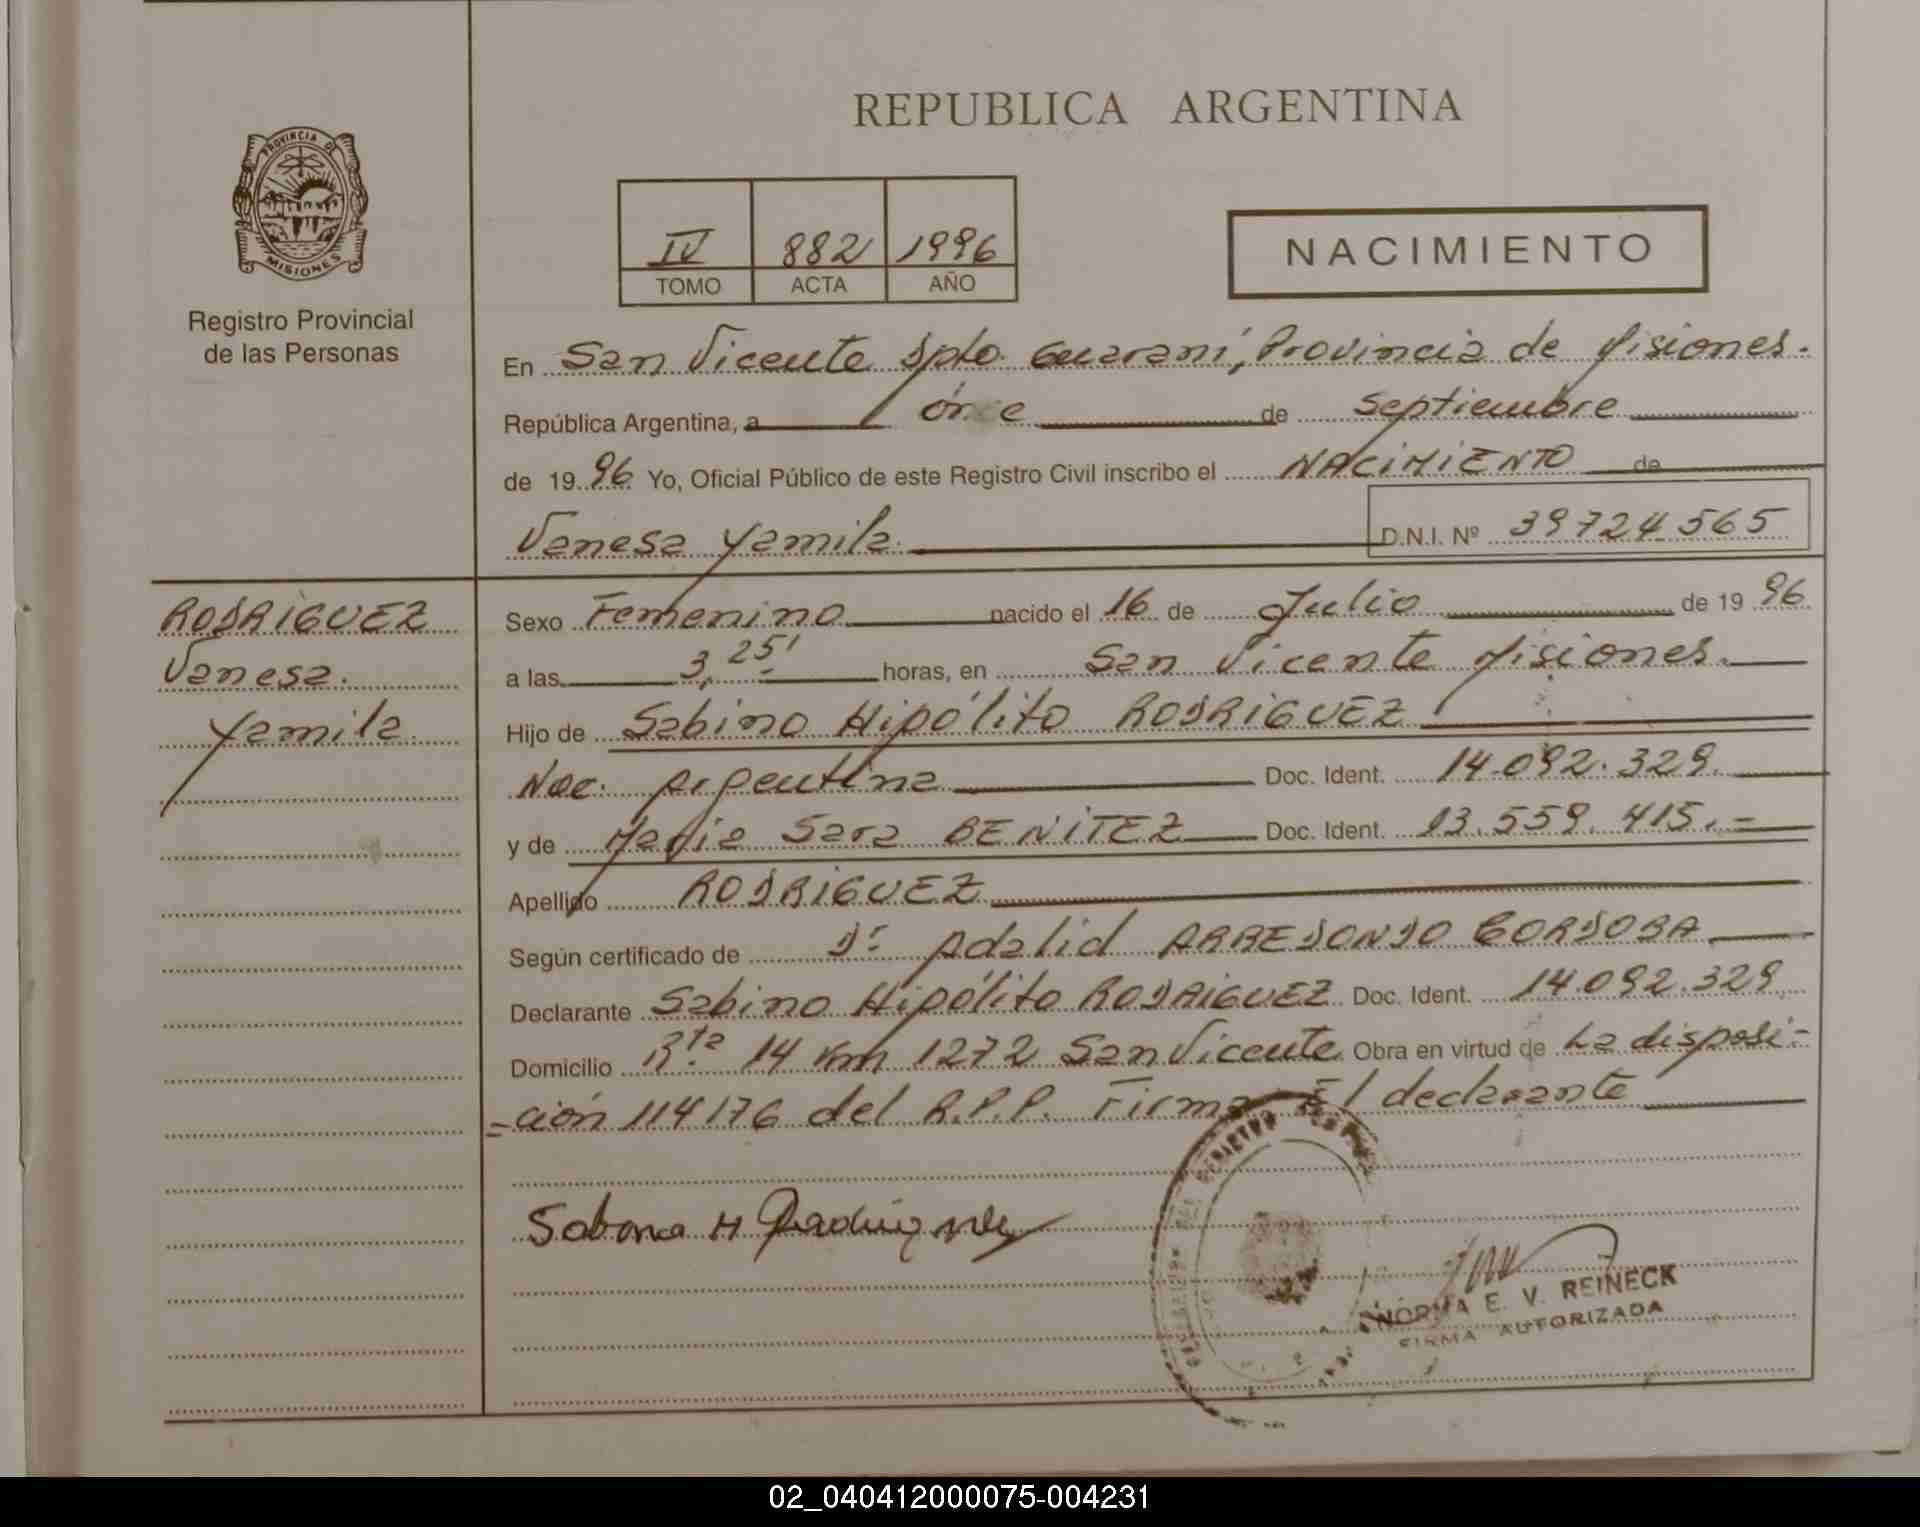 REPUBLICA ARGENTINA
PROVINCIA DE
MISIONES
Registro Provincial
de las Personas
IV 882 1996
TOMO ACTA AÑO
NACIMIENTO
En San Vicente Dpto. Guaraní, Provincia de Misiones.
República Argentina, a once de Septiembre
de 1996 Yo, Oficial Público de este Registro Civil inscribo el NACIMIENTO de
Vanesa Yamila. D.N.I. Nº 39724565
RODRIGUEZ
Vanesa.
Yamila.
Sexo Femenino nacido el 16 de Julio de 1996
a las 3,25' horas, en San Vicente Misiones.
Hijo de Sabino Hipólito RODRIGUEZ
Nac. Argentina Doc. Ident. 14.092.329.
y de Maria Sara BENITEZ Doc. Ident. 13.559.415.-
Apellido RODRIGUEZ
Según certificado de Dr. Adalid ARREDONDO CORDOBA
Declarante Sabino Hipólito RODRIGUEZ Doc. Ident. 14.092.329
Domicilio Rta. 14 Km 1272 San Vicente Obra en virtud de La disposi-
-ción 114176 del R.P.P. Firma El declarante
NORMA E. V. REINECK
FIRMA AUTORIZADA
02_040412000075-004231